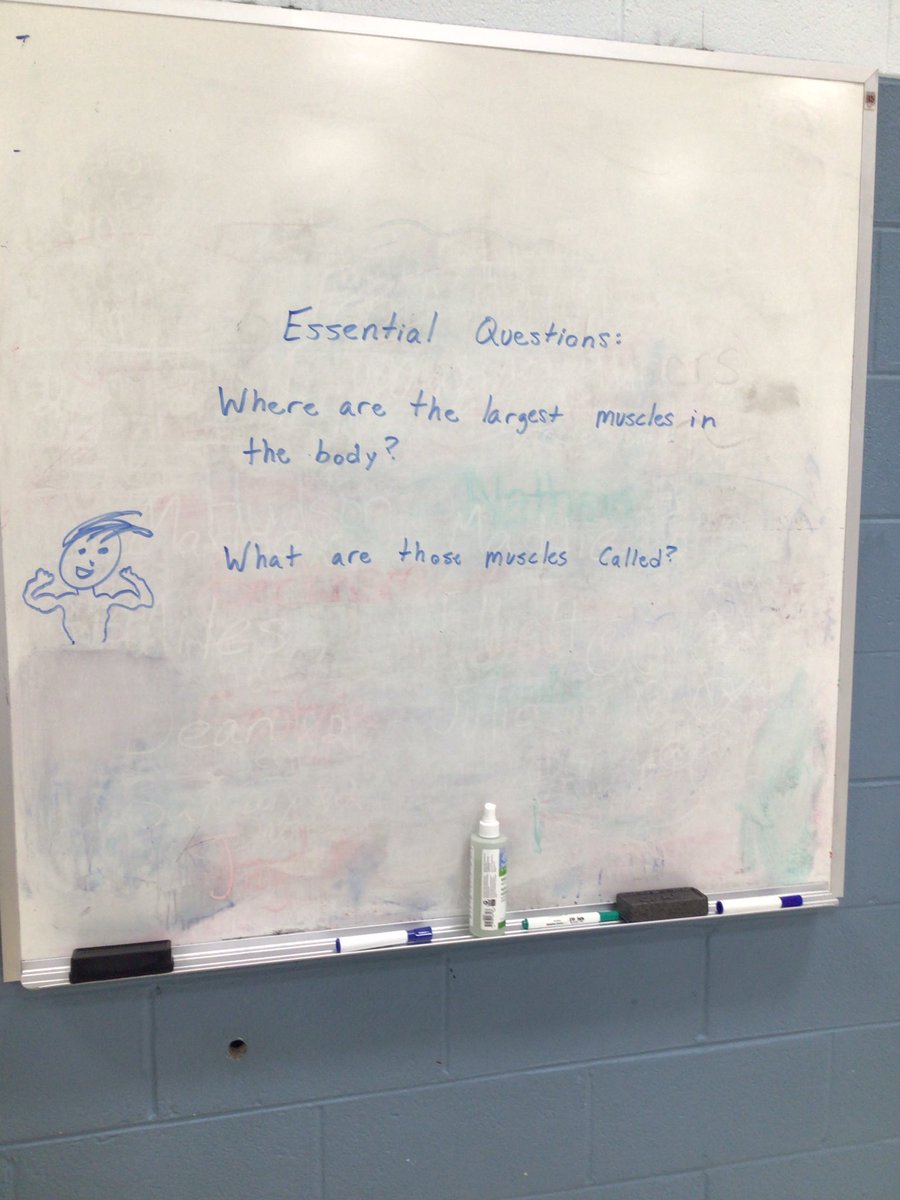 Essential Questions:
Where are the largest muscles in
the body?
What are those muscles called?